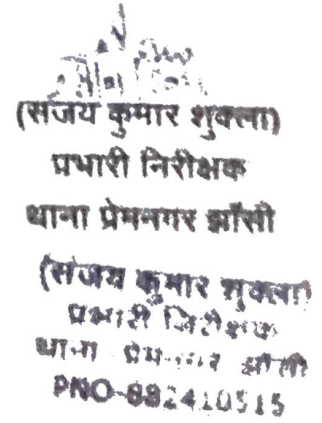 (संजय कुमार शुक्ला)
प्रभारी निरीक्षक
थाना प्रेमनगर झाँसी
(संजय कुमार शुक्ला)
प्रभारी निरीक्षक
थाना प्रेमनगर झाँसी
PNO-992410515